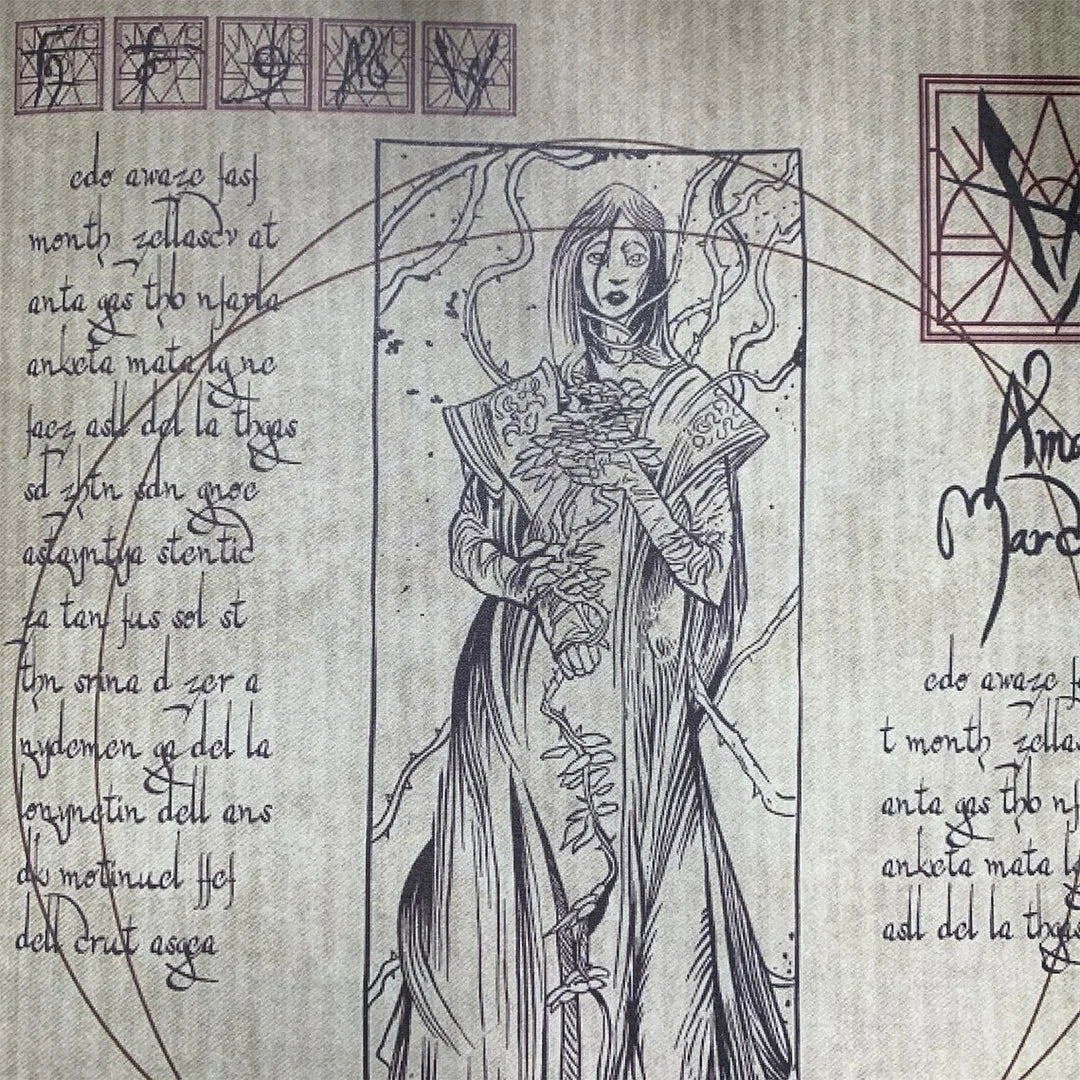 h f g As W
edo awaze fasf
month zellasev at
anta gas thb nfarla
anketa mata lg ne
faez asll del la thgas
sd zhtn sdn gnoe
astayntya stentic
za tan fus sel st
thn srina d zer a
nydemen ga del la
onyngtin dell ans
dk motinuel ffef
dell erut asgea
Ama
Marc
edo awaze fa
t month zellas
anta gas thb nf
anketa mata lg
asll del la thgas